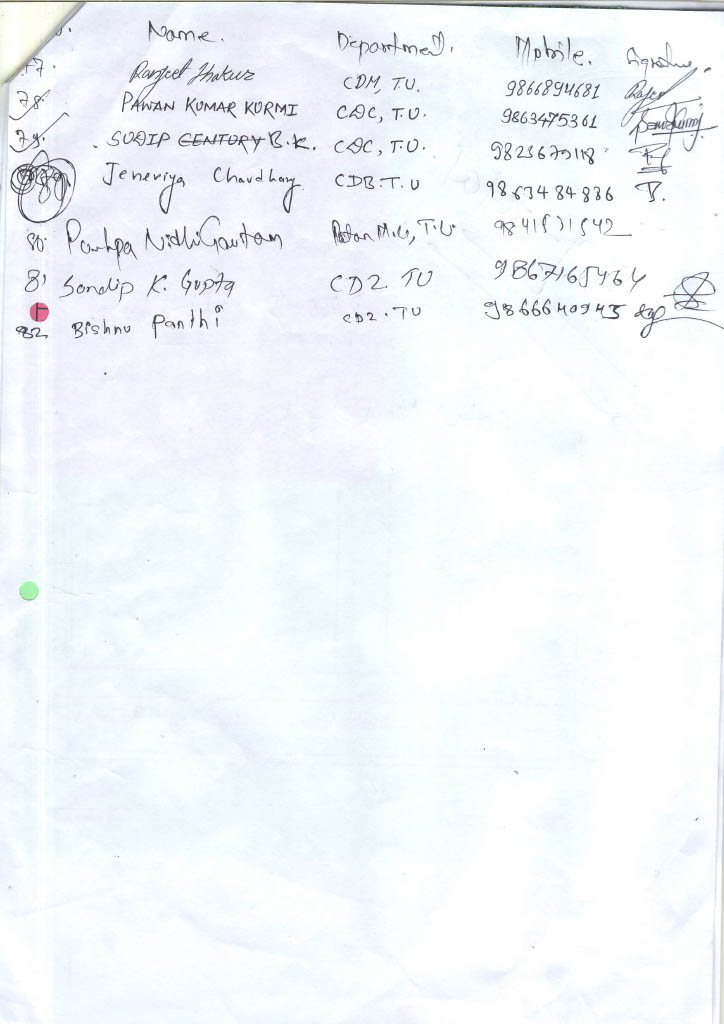 Name. Department. Mobile. Signature.
77. Ranjeet Thakur CDM, T.U. 9866894681
78. PAWAN KUMAR KURMI CDC, T.U. 9863475361
79. SUDIP CENTURY B.K. CDC, T.U.
Jeneviya Chaudhary CDB.T.U 9863484836
80. Nidhi Gautam T.U.
81 Sandip K. Gupta CDZ. TU 9867165464
82 Bishnu Panthi CDZ.TU 9866640945